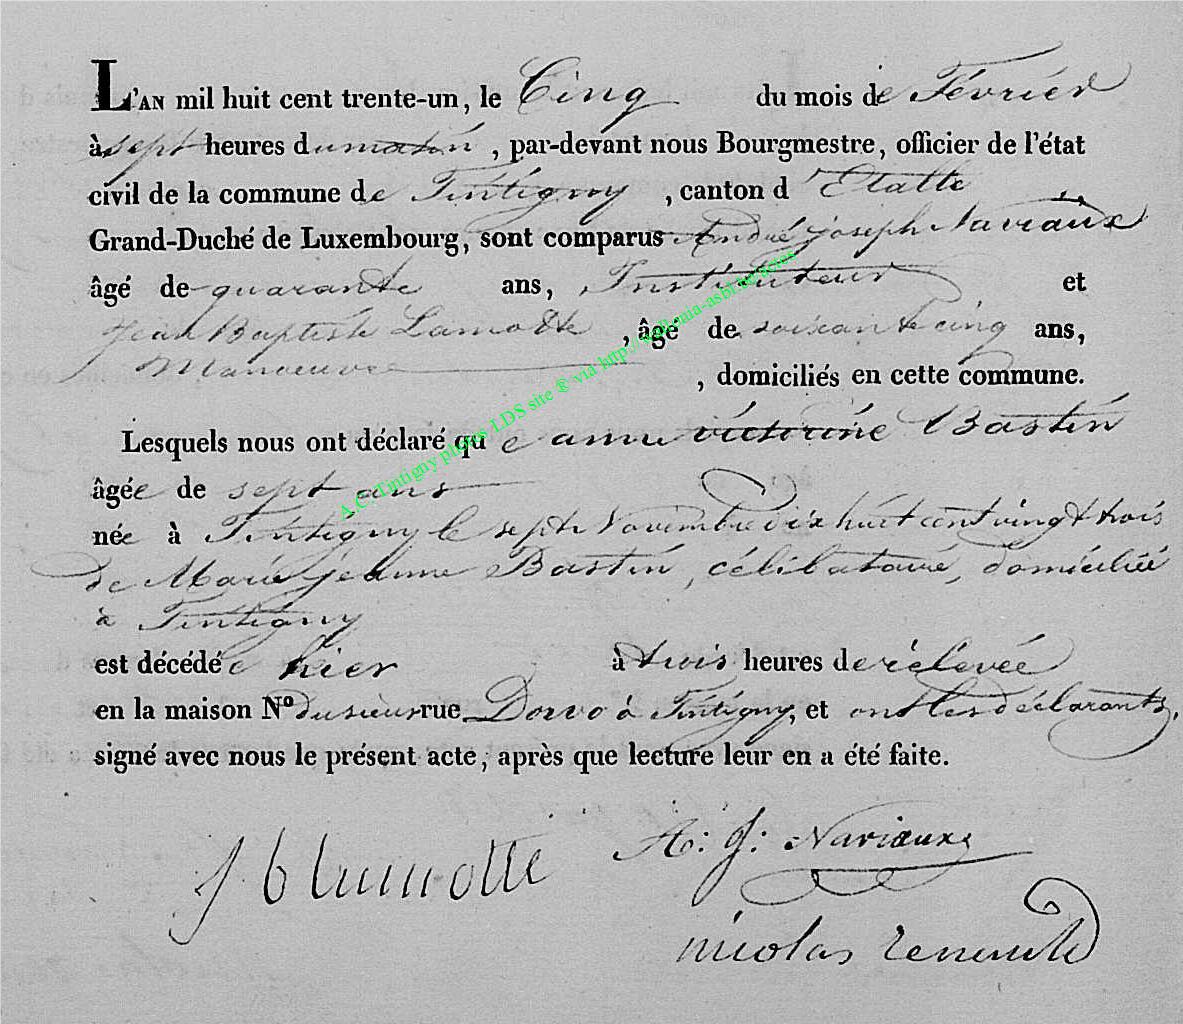 L'AN mil huit cent trente-un, le Cinq du mois de Février
à sept heures du matin, par-devant nous Bourgmestre, officier de l'état
civil de la commune de Tintigny, canton d'Etalle
Grand-Duché de Luxembourg, sont comparus André joseph Naviaux
âgé de quarante ans, Instituteur et
jean Baptiste Lamotte, âgé de soixante cinq ans,
Manoeuvre, domiciliés en cette commune.
Lesquels nous ont déclaré que anne victorine Bastin
âgée de sept ans
née à Tintigny le sept Novembre dix huit cent vingt trois
de Marie jeanne Bastin, célibataire, domiciliée
à Tintigny
est décédée hier à trois heures de rélévée
en la maison N° du sieur rue Dorvo à Tintigny, et ont les déclarants,
signé avec nous le présent acte, après que lecture leur en a été faite.
J b lamotte
A: J: Naviaux
nicolas renauld
A.C. Tintigny photos LDS site ® via http://